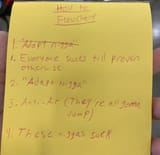 How to
Flowchart
1. "Adapt nigga"
1. Everyone sucks till proven
otherwise
2. "Adapt nigga"
3. (They're all gonna
jump)
4. These niggas suck